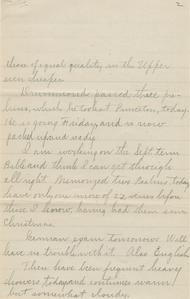 2
those of equal quality in the Upper
seem cheaper.
Drummond passed three pre-
lims, which he took at Princeton, today.
He is going Friday, and is now
packed up and ready.
I am working on the Sept term
Bible and think I can get through
all right. Memorized two Psalms today
have only one more of 22 verses before
those I know, having had them some
Christmas.
German again tomorrow. Will
have no trouble with it. Also English
There have been frequent heavy
showers today and continues warm
but somewhat cloudy.